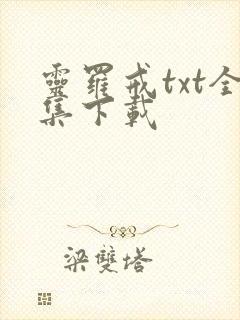 靈羅戒txt全
集下載
梁雙塔